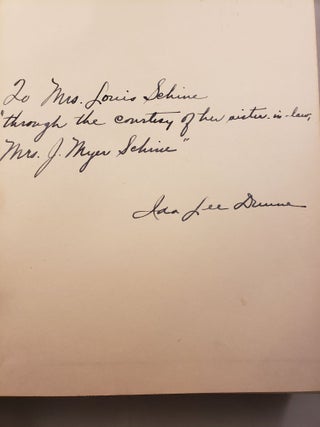 To Mrs. Louis Schine
"through the courtesy of her sister-in-law,
Mrs. J. Myer Schine"
Ida Lee Dunne